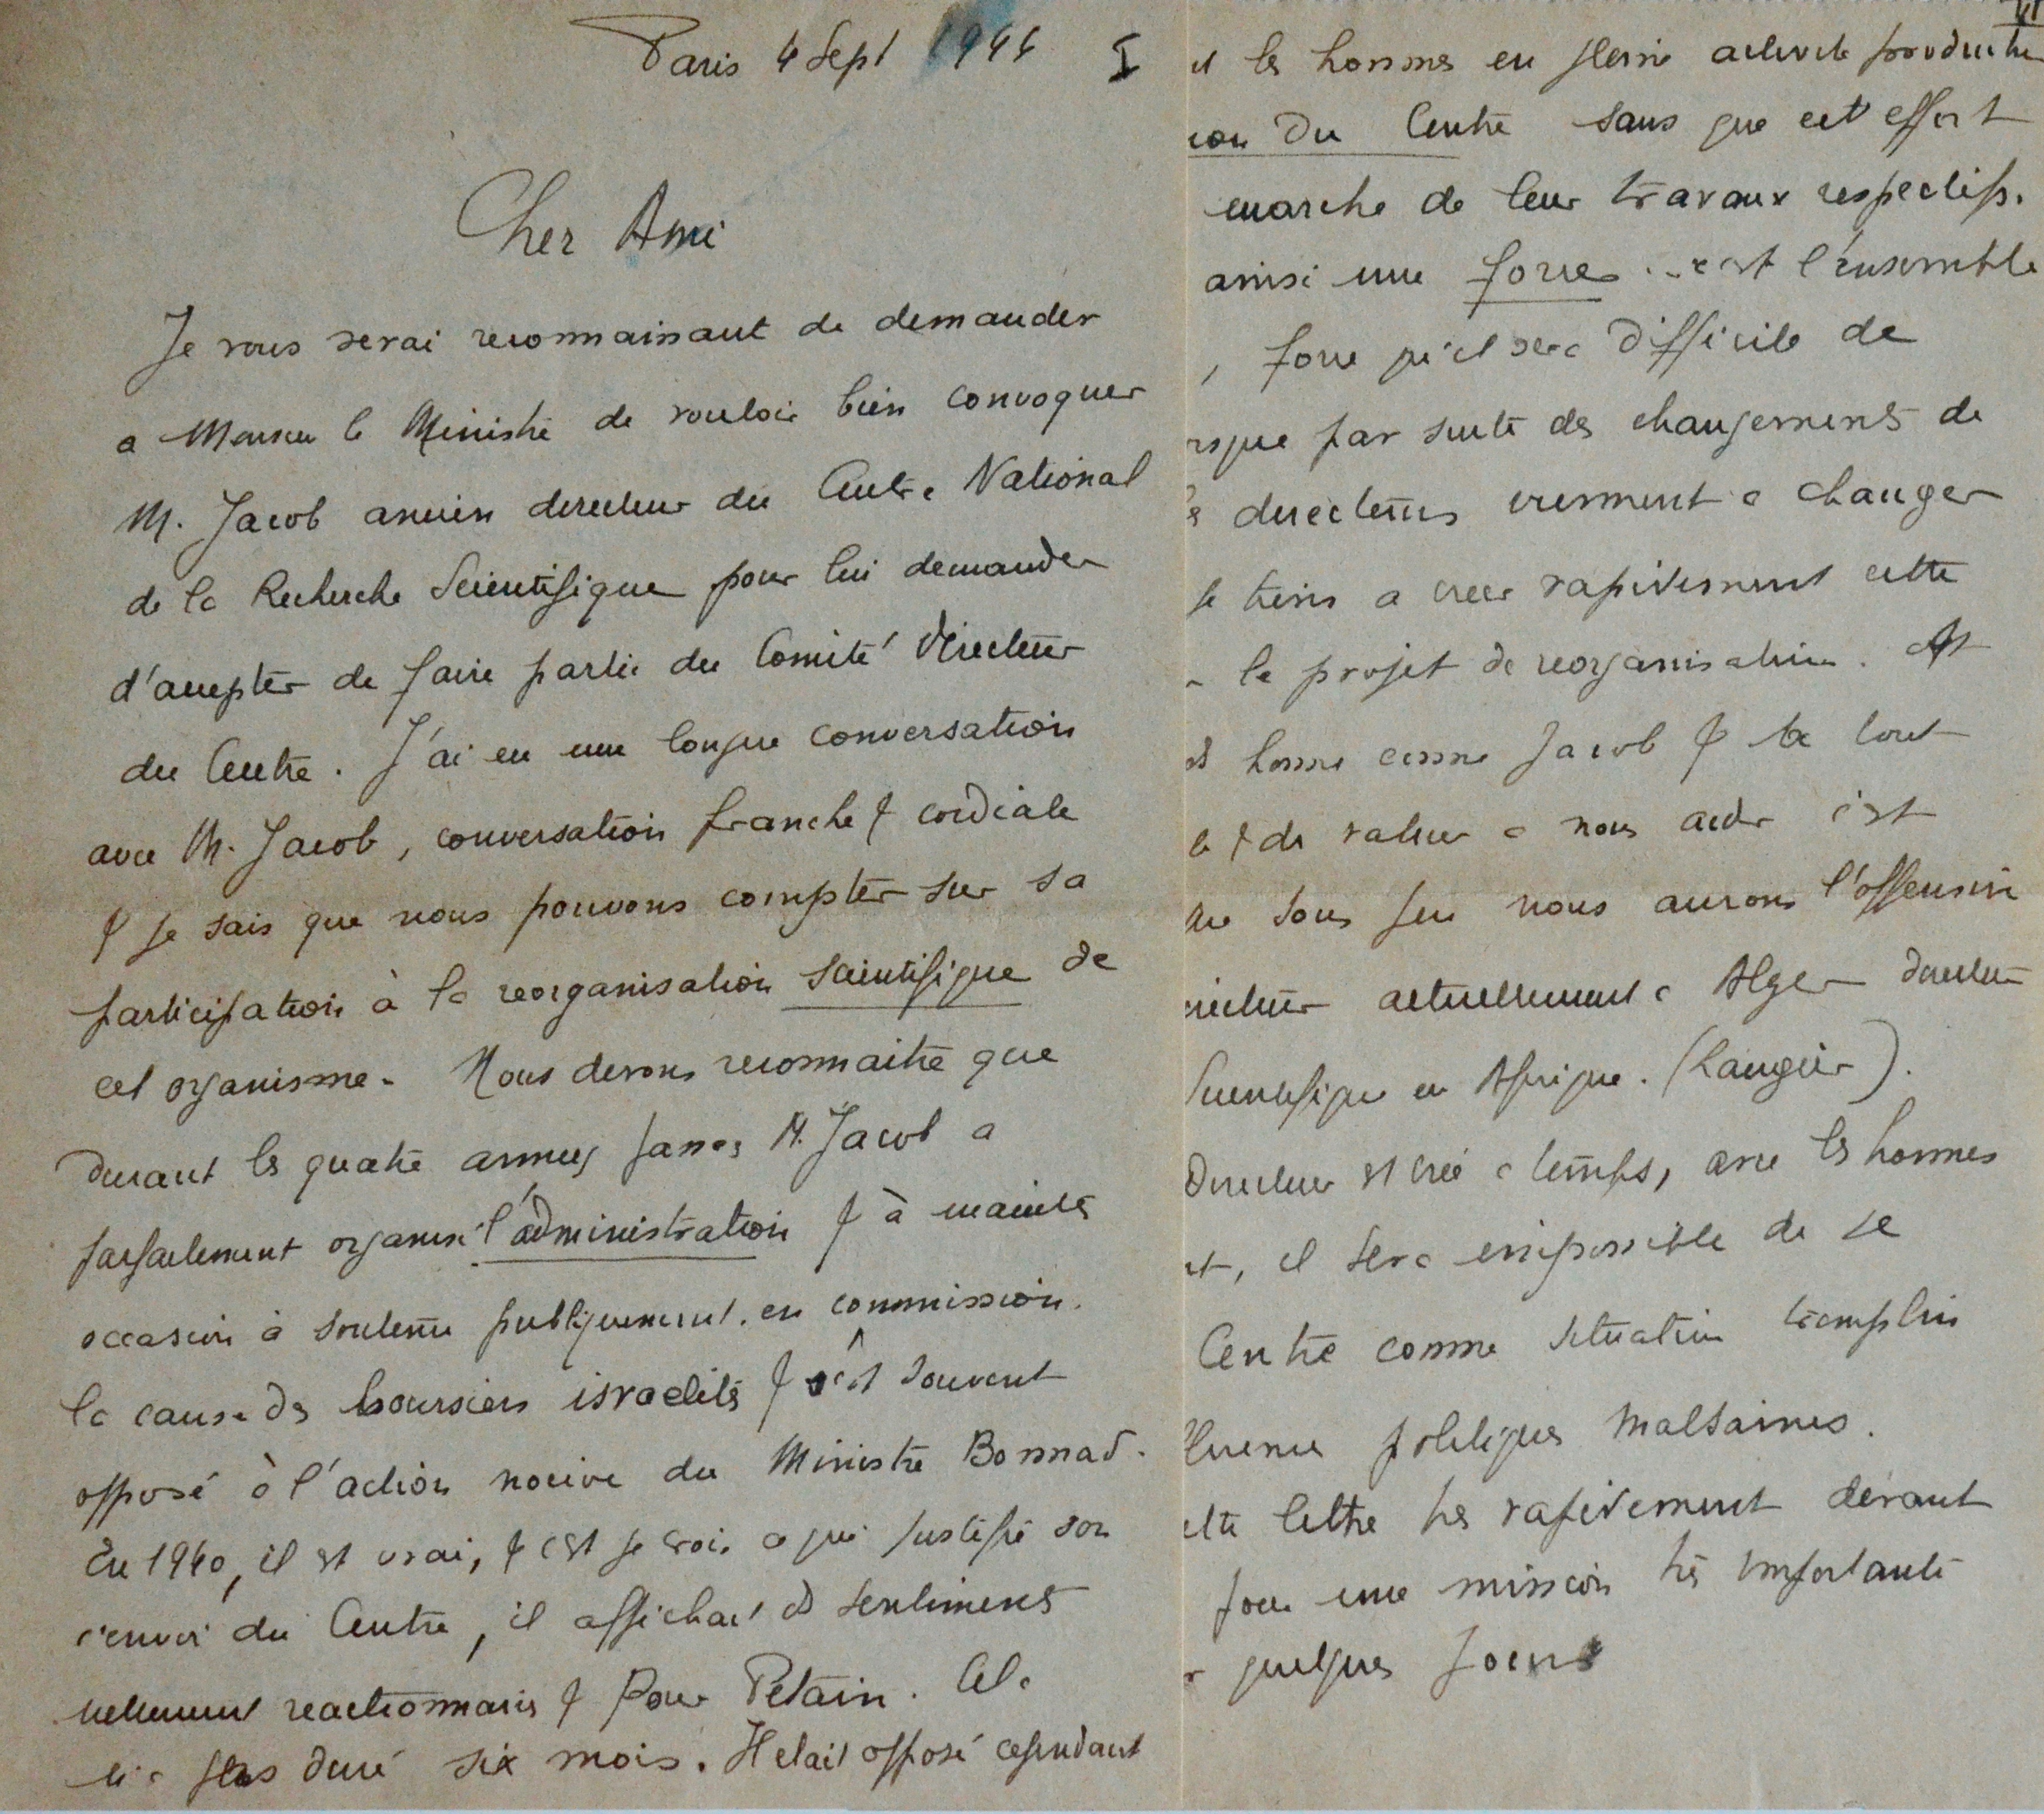 Paris 4 Sept 1944 I
Cher Ami
Je vous serai reconnaissant de demander
a Monsieur le Ministre de vouloir bien convoquer
M. Jacob ancien directeur du Centre National
de la Recherche Scientifique pour lui demander
d'accepter de faire partie du Comité directeur
du Centre. J'ai eu une longue conversation
avec M. Jacob, conversation franche & cordiale
& je sais que nous pouvons compter sur sa
participation à la reorganisation scientifique de
cet organisme. Nous devons reconnaitre que
durant les quatre annees passees M. Jacob a
parfaitement organisé l'administration & à maintes
occasion à soutenu publiquement en commission
la cause des boursiers israelites & s'est souvent
opposé à l'action nocive du Ministre Bonnard.
En 1940, il est vrai, & c'est je crois ce qui justifie son
renvoi du Centre, il affichait des sentiments
nettement reactionnaires & pour Petain. Cela
n'a pas duré six mois. Il etait opposé cependant
VI
et les hommes en pleine activite productrice
ion du Centre sans que cet effort
marche de leur travaux respectifs.
ainsi une force c'est l'ensemble
, force qu'il sera difficile de
rsque par suite des changements de
s directeurs viennent a changer
je tiens a creer rapidement cette
le projet de reorganisation.
homme comme Jacob &  tout
& de valeur a nous aider c'est
que sous peu nous aurons l'offensive
recteur actuellement a Alger directeur
Scientifique en Afrique. (Laugier).
Directeur est créé a temps, avec les hommes
nt, il sera impossible de se
Centre comme situation tremplin
fluences politiques malsaines.
ette lettre tres rapidement devant
pour une mission très importante
r quelques jours